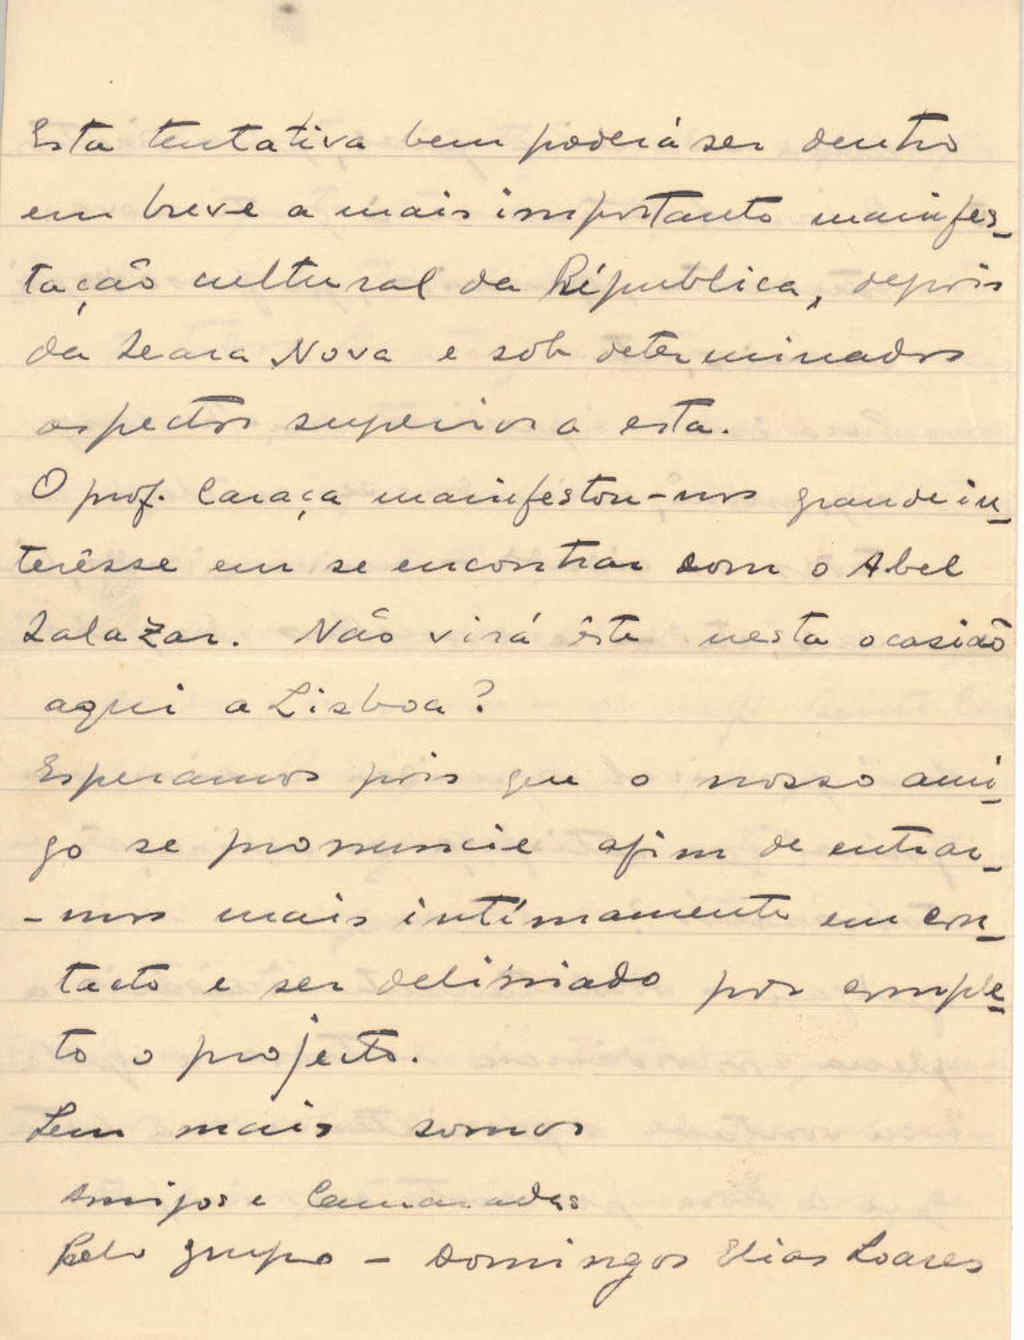 Esta tentativa bem poderá ser dentro
em breve a mais importante manifes-
tação cultural da República, depois
da Seara Nova e sob determinados
aspectos superior a esta.
O prof. Caraça manifestou-nos grande in-
terêsse em se encontrar com o Abel
Salazar. Não virá êste nesta ocasião
aqui a Lisboa?
Esperamos pois que o nosso ami-
go se pronuncie afim de entrar-
-mos mais intímamente em con-
tacto e ser delimiado por comple-
to o projecto.
Sem mais somos
Amigos e Camaradas
Pelo grupo - Domingos Elias Soares